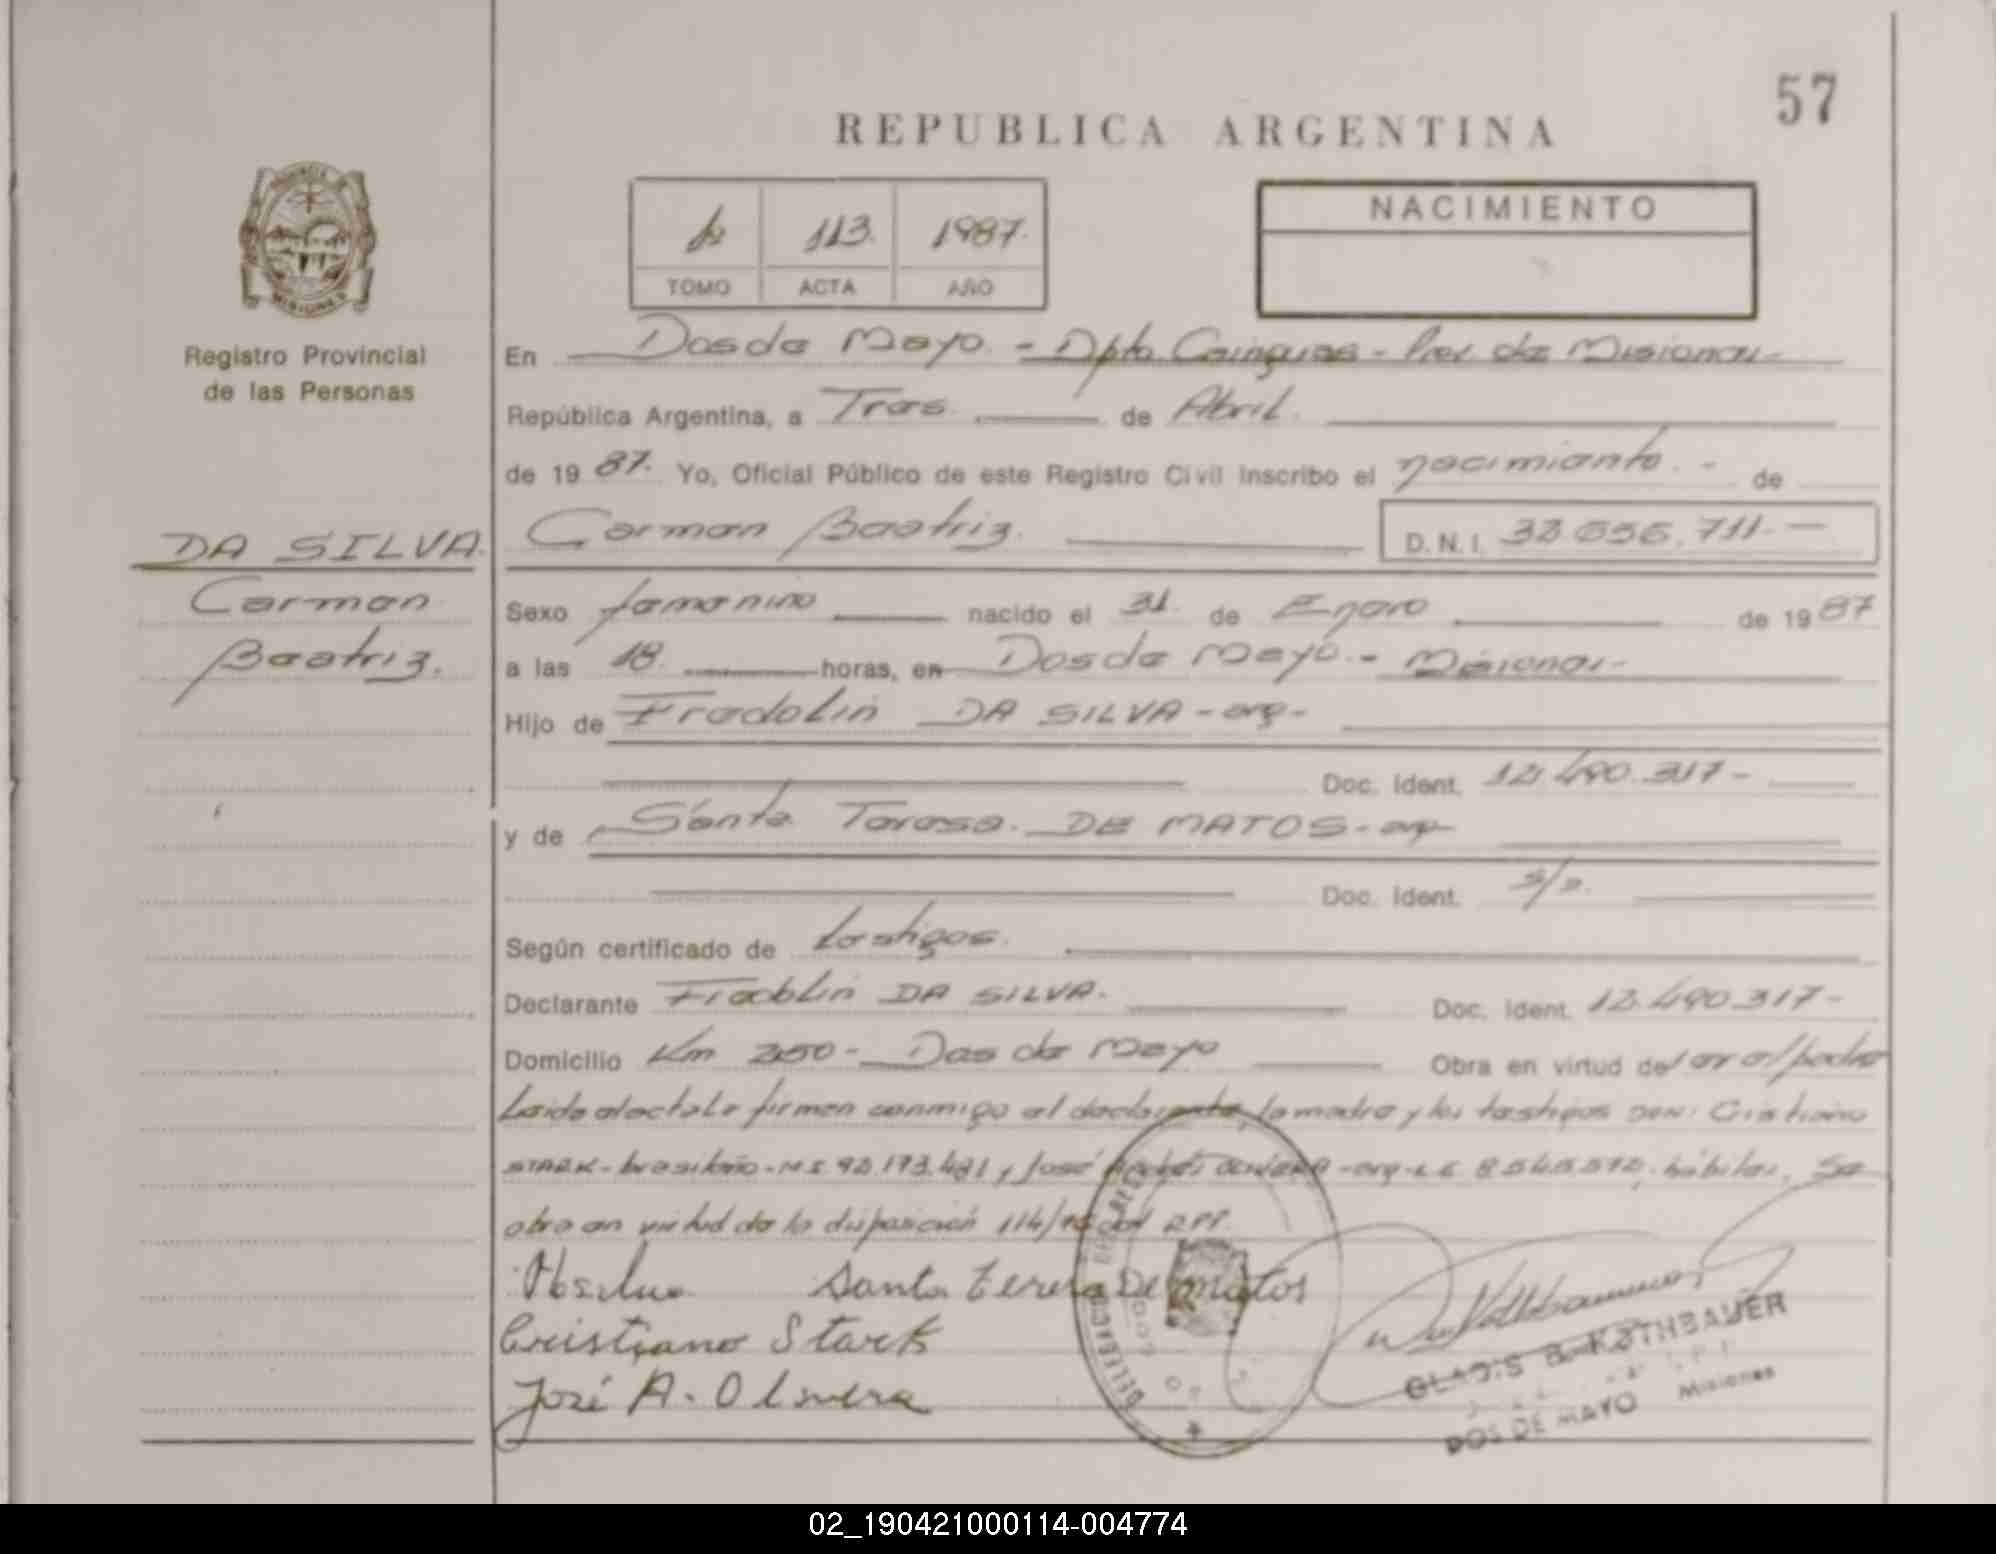 57
REPUBLICA ARGENTINA
113. 1987.
TOMO ACTA AÑO
NACIMIENTO
MISIONES
Registro Provincial
de las Personas
DA SILVA.
Carmen
Beatriz.
En Dos de Mayo - Dpto Cainguas - Prov. de Misiones -
República Argentina, a Tres. de Abril.
de 19 87. Yo, Oficial Público de este Registro Civil inscribo el nacimiento. - de
Carmen Beatriz. D.N.I. 711. -
Sexo femenino nacido el 31. de Enero de 1987
a las 18. horas, en Dos de Mayo. - Misiones -
Hijo de Fredolin DA SILVA - arg -
Doc. Ident. 12.490.317 -
y de Santa Teresa. DE MATOS - arg
Doc. Ident.
Según certificado de testigos.
Declarante Fredolin DA SILVA.
Doc. Ident. 12.490.317 -
Domicilio Km 250 - Dos de Mayo Obra en virtud de ser el padre
Leida el acta la firman conmigo el declarante, la madre y los testigos Cristiano
STARK - brasileño - José OLIVERA - arg - hábiles. Se
obra en virtud de la disposición del RPP.
Santa Teresa De Matos
Cristiano Stark
José A. Olivera
GLADIS B. KOTHBAUER
DOS DE MAYO Misiones
02_190421000114-004774